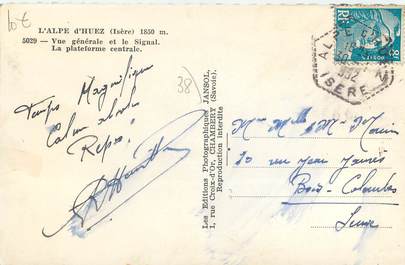 10€
L'ALPE d'HUEZ (Isère) 1850 m.
5029 — Vue générale et le Signal.
La plateforme centrale.
38)
Temps Magnifique
Calme absolu
Repos!
Les Editions Photographiques JANSOL,
1, rue Croix-d'Or, CHAMBERY (Savoie).
Reproduction interdite
RF
8F
ISERE
rue Jean Jaurès
Bois-Colombes
Seine